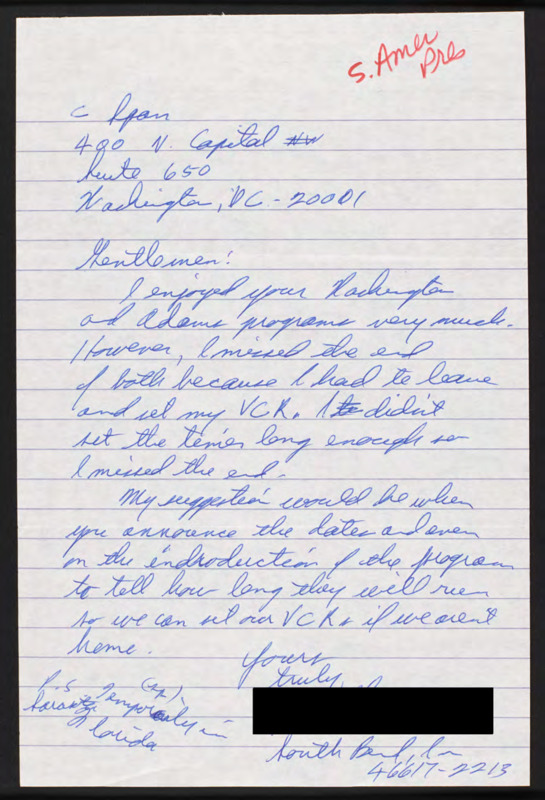 S. Amer
Pres
C Span
400 N. Capital NW
Suite 650
Washington, DC. - 20001
Gentlemen:
I enjoyed your Washington
and Adams programs very much.
However, I missed the end
of both because I had to leave
and set my VCR. I didn't
set the timer long enough so
I missed the end.
My suggestion would be when
you announce the dates and even
on the indroduction of the program
to tell how long they will run
so we can set our VCRs if we aren't
home.
Yours
truly,
P.S. Temporarily in
Florida
South Bend, In
46617-2213